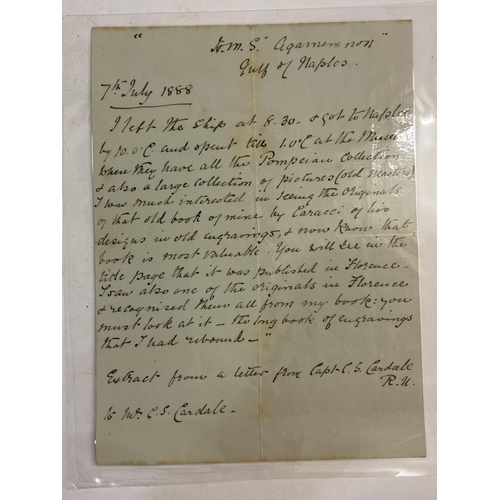 "H.M.S." Agamemnon"
Gulf of Naples.
7th July 1888
I left the Ship at 8.30 - & got to Naples
by 10.0'C and spent till 1.0'C at the Museum
where they have all the Pompeian Collection
& also a large collection of pictures (old masters)
I was much interested in seeing the originals
of that old book of mine by Caracci of his
designs in old engravings, & now know that
book is most valuable. You will see in the
title page that it was published in Florence -
I saw also one of the originals in Florence
& recognized them all from my book: you
must look at it - the long book of engravings
that I had rebound -"
Extract from a letter from Capt. C. S. Cardale
R.N.
to Mrs C. S. Cardale -